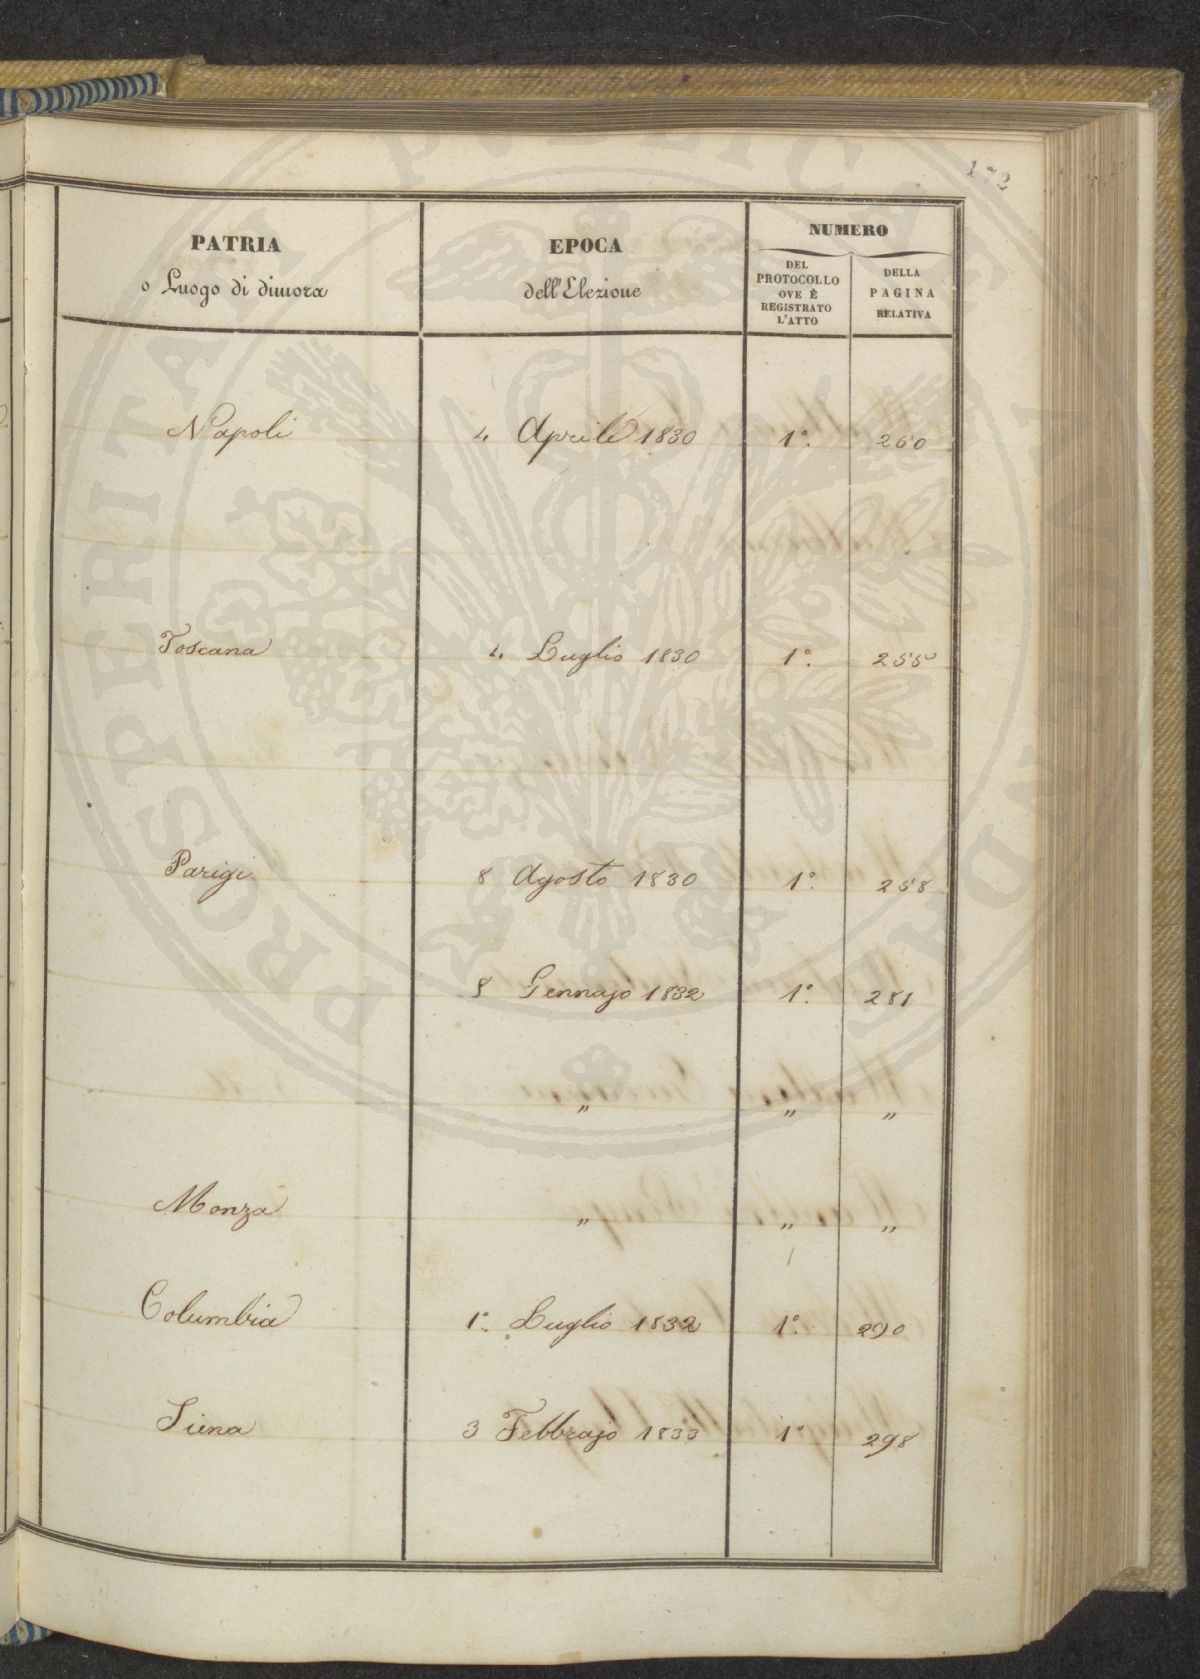 172
PATRIA
o Luogo di dimora
EPOCA
dell'Elezione
NUMERO
DEL
PROTOCOLLO
OVE È
REGISTRATO
L'ATTO
DELLA
PAGINA
RELATIVA
Napoli 4 Aprile 1830 1°. 260
Toscana 4 Luglio 1830 1°. 255
Parigi 8 Agosto 1830 1°. 258
8 Gennajo 1832 1°. 281
" " "
Monza " " "
Columbia 1°. Luglio 1832 1°. 290
Siena 3 Febbrajo 1833 1° 298
PROSPERITATI PUBLICAE AUGENDAE